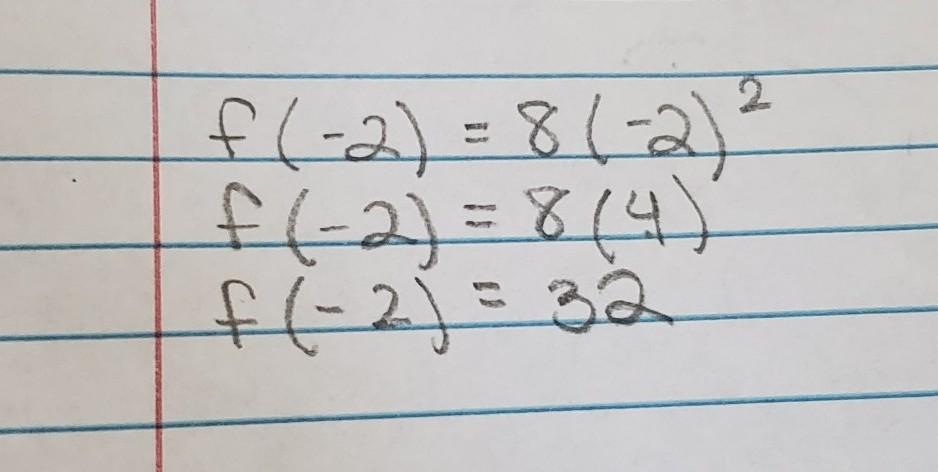 f(-2) = 8(-2)²
f(-2) = 8(4)
f(-2) = 32